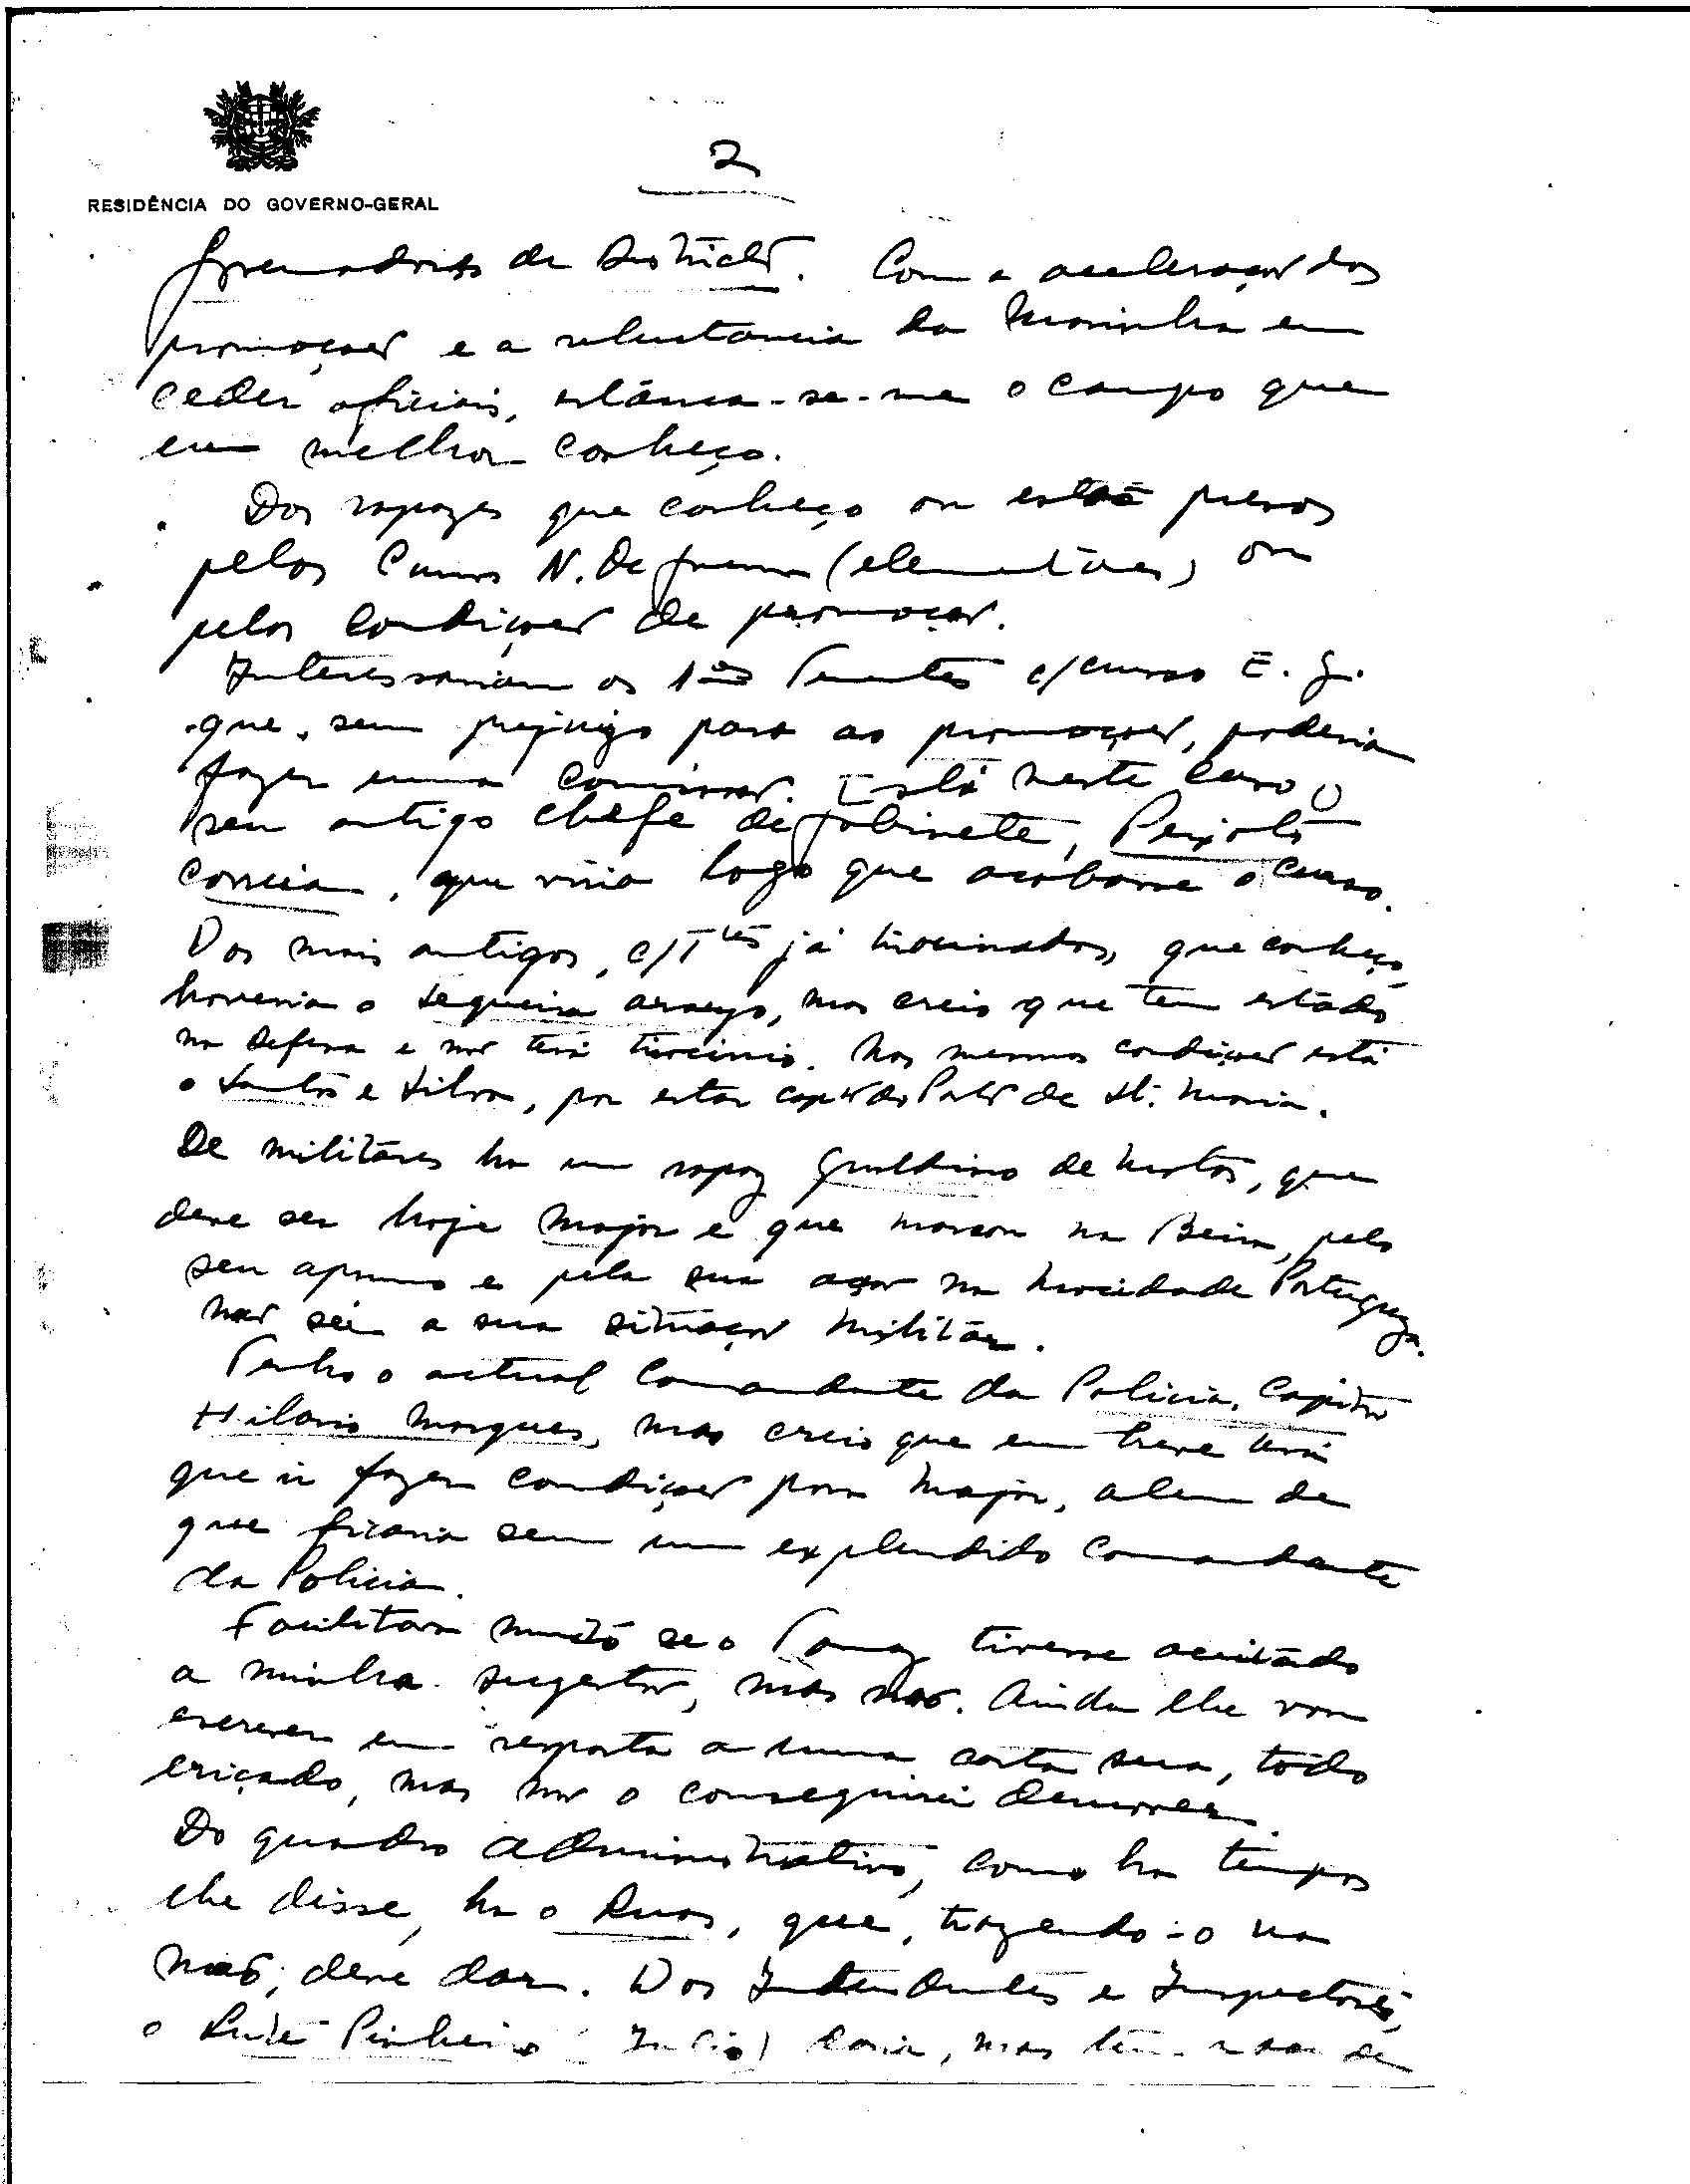 RESIDÊNCIA DO GOVERNO-GERAL
2
Governadores de Districto. Com a aceleração das
promoções e a relutancia da Marinha em
ceder oficiais, estanca-se-me o campo que
eu melhor conheço.
Dos rapazes que conheço ou estão presos
pelos Cursos N. De Guerra (elementares) ou
pelas condições de promoção.
Interessariam os 1os Tenentes c/curso E. G.
que, sem prejuizo para as promoções, poderia
fazer uma comissão. Está neste caso o
seu antigo chefe de gabinete, Peixoto
Correia, que viria logo que acabasse o curso.
Dos mais antigos, c/Ttes já tirocinados, que conheço,
haveria o Sequeira Araujo, mas creio que tem estado
na Defesa e não terá tirocinio. Nas mesmas condições está
o Santos e Silva, por estar capitão do Porto de Stª. Maria.
De militares ha um rapaz Gualdino de Matos, que
deve ser hoje Major e que marcou na Beira, pelo
seu aprumo e pela sua ação na Mocidade Portugueza.
Não sei a sua situação militar.
Tenho o actual Comandante da Policia, Capitão
Hilario Marques, mas creio que em breve terá
que ir fazer condições para Major, alem de
que ficaria sem um explendido comandante
da Policia.
Facilitava muito se o Tomaz tivesse aceitado
a minha sugestão, mas não. Ainda lhe vou
escrever em resposta a uma carta sua, todo
eriçado, mas não o conseguirei demover.
Do quadro administrativo, como ha tempos
lhe disse, ha o Ruas, que, trazendo-o na
mão, deve dar. Dos Intendentes e Inspectores,
o Pinheiro daria, mas